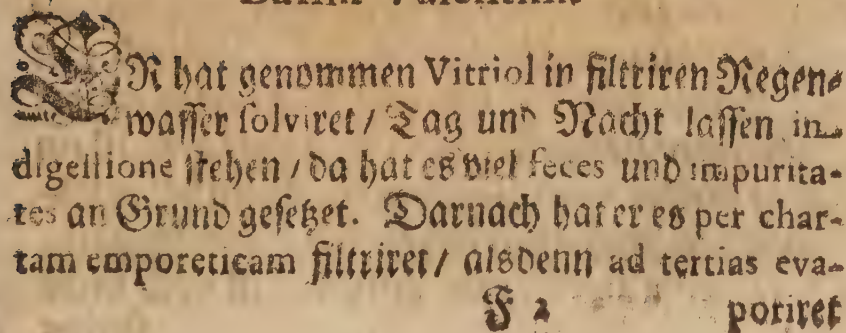 ER hat genommen Vitriol in filtriren Regen-
wasser solviret / Tag und Nacht lassen in
digestione stehen / da hat es viel feces und impurita-
tes an Grund gesetzet. Darnach hat er es per char-
tam emporeticam filtriret / alsdenn ad tertias eva-
F 2 poriret